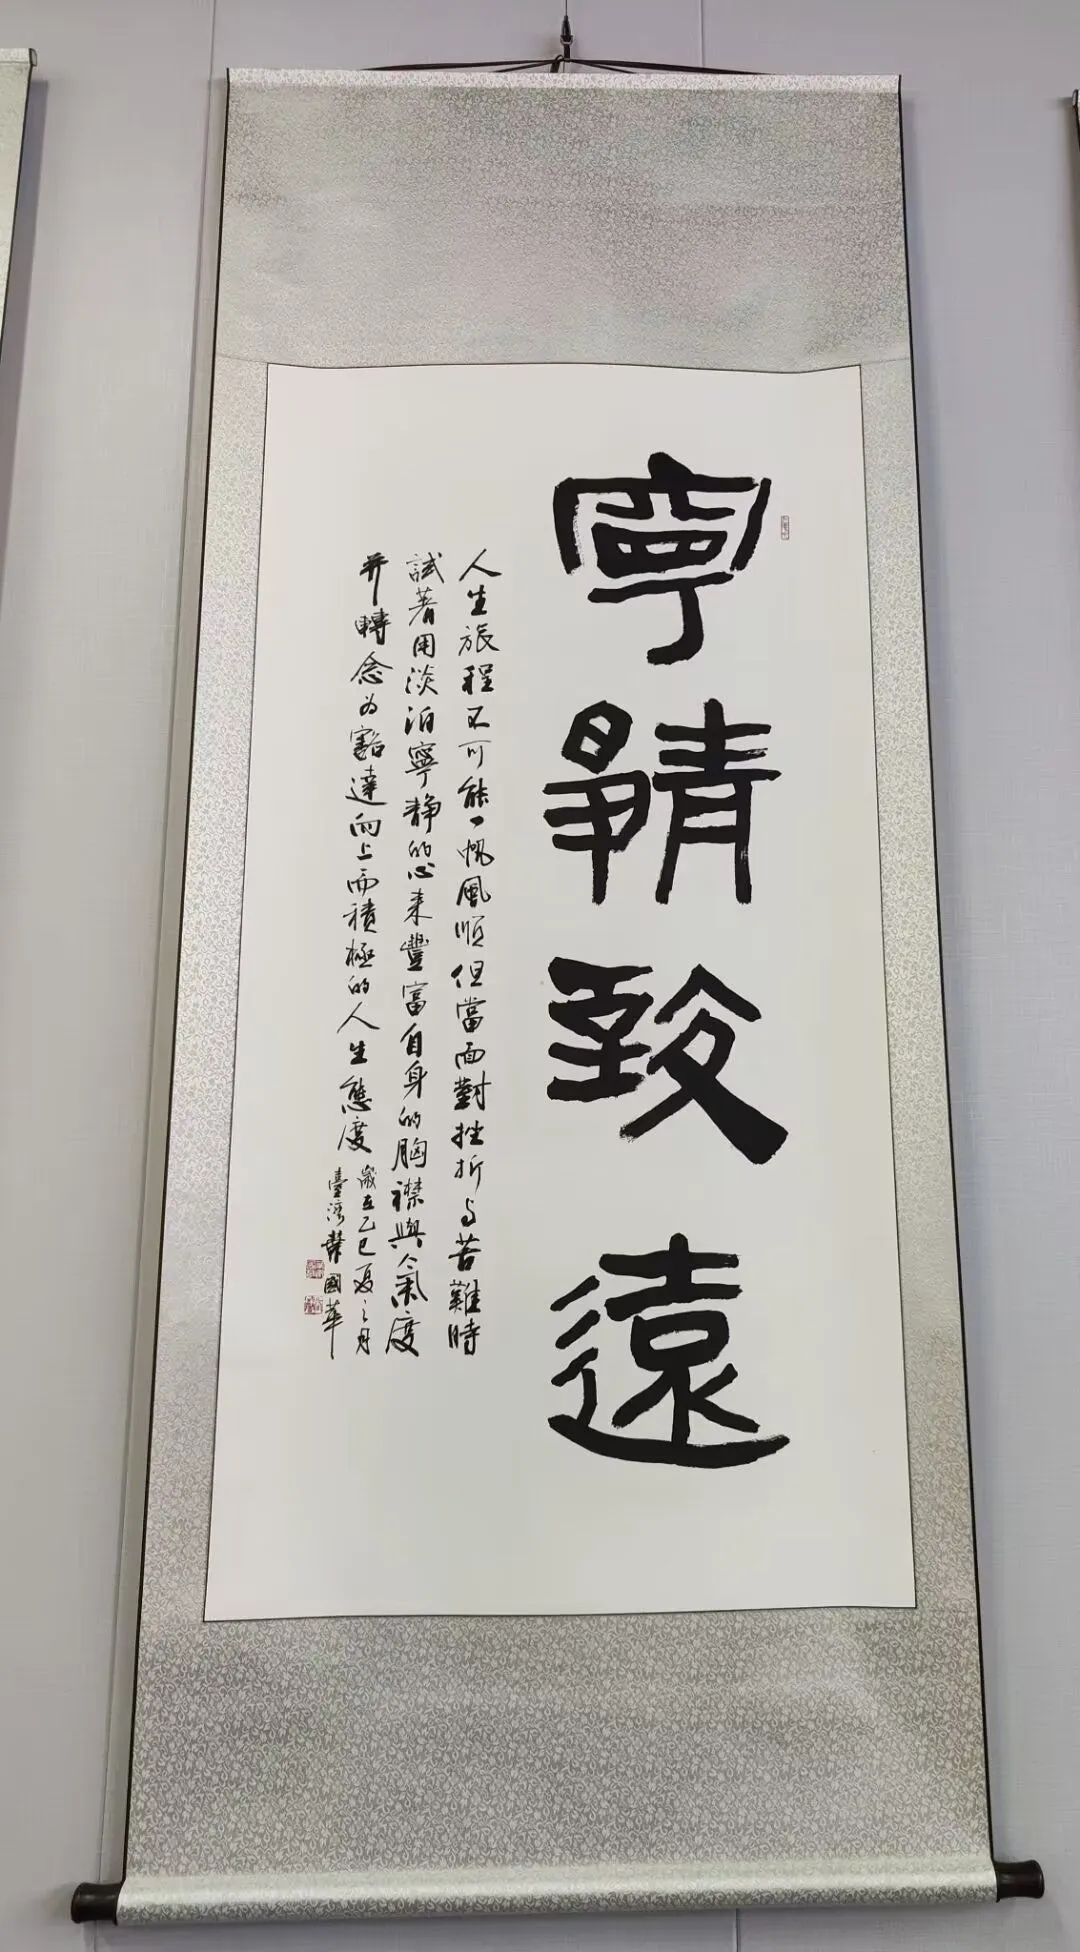 寧靜致遠
人生旅程不可能一帆風順但當面對挫折与苦難時
試著用淡泊寧靜的心来豐富自身的胸襟與氣度
并轉念为豁達向上而積極的人生態度
歲在乙巳夏之月
臺灣 國華